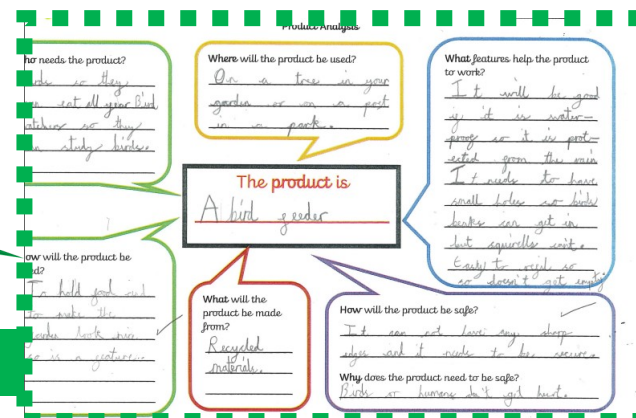 Product Analysis
ho needs the product?
rds so they
n eat all year Bird
atchers so they
n study birds.
Where will the product be used?
On a tree in your
garden or on a post
in a park.
What features help the product
to work?
It will be good
if it is water-
proof so it is prot-
ected from the rain
It needs to have
small holes so birds
beaks can get in
but squirells can't.
Easy to refil so
so doesn't get empty
The product is
A bird feeder
ow will the product be
ed?
To hold food and
to make the
garden look nice
so is a feature.
What will the
product be made
from?
Recycled
materials.
How will the product be safe?
It can not have any sharp
edges and it needs to be secure.
Why does the product need to be safe?
Birds or humans don't get hurt.